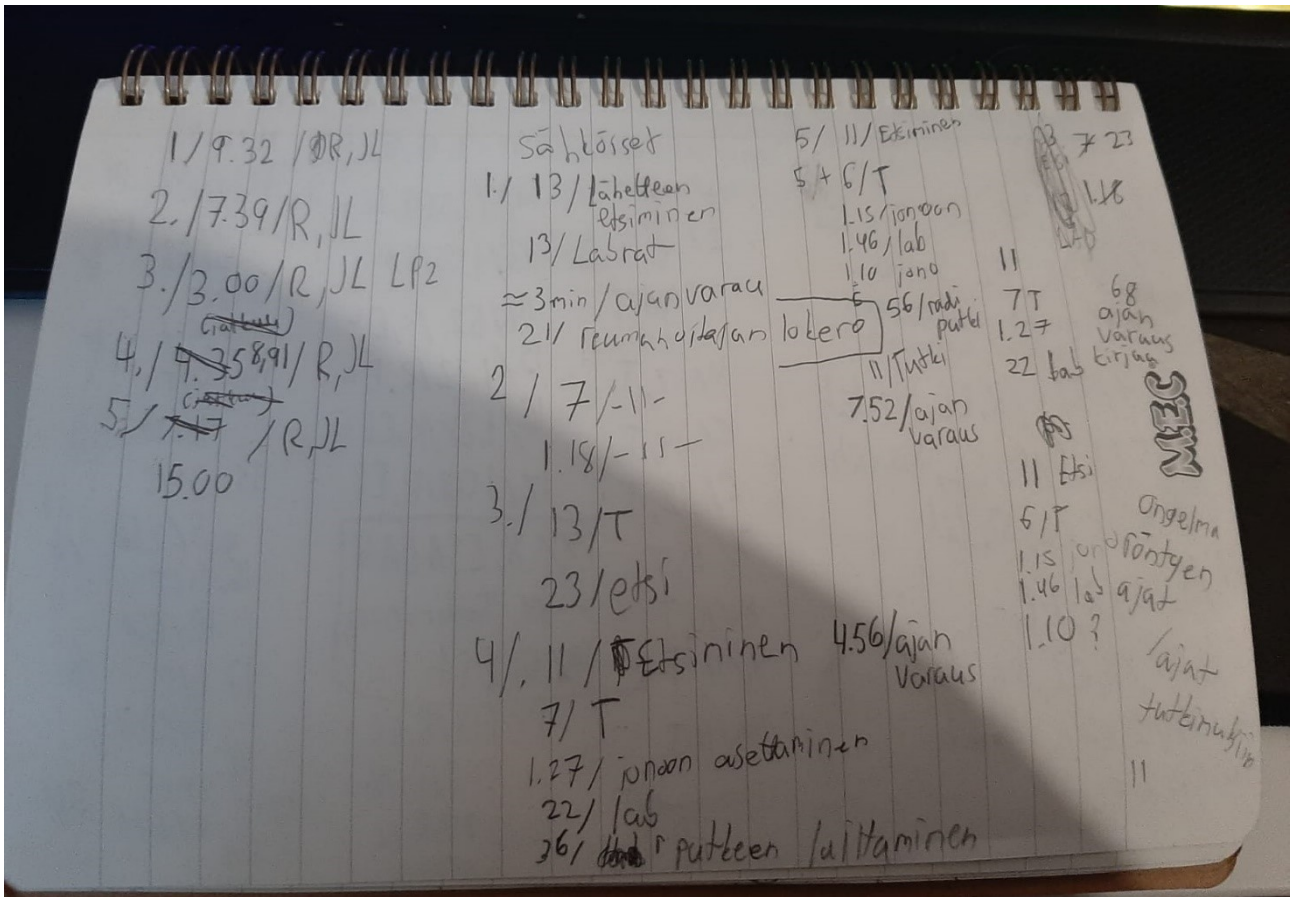 1/9.32 /R, JL
2./7.39/R, JL
3./3.00/R, JL LP2
4./ 58,91/ R, JL
5./ /R, JL
15.00
Sähköiset
1./ 13/ Lähetteen
etsiminen
13/ Labrat
≈3min/ajan varau
21/ reumahoitajan lokero
2/ 7/-11-
1.18/-11-
3./ 13/T
23/etsi
4/. 11/ Etsininen
7/ T
1.27/ jonoon asettaminen
22/ lab
36/ putkeen laittaminen
4.56/ajan
varaus
5/ 11/Etsiminen
5+ 6/T
1.15/jonoon
1.46/lab
1.10 jono
56/radi
putki
11/Tutki
7.52/ajan
varaus
7 23
1.18
11
7T
1.27
22 lab
68
ajan
varaus
kirjaa
M.E.C
11 Etsi
6/T
1.15
1.46 lab
1.10?
Ongelma
röntgen
ajat
/ajat
tutkimuksiin
11